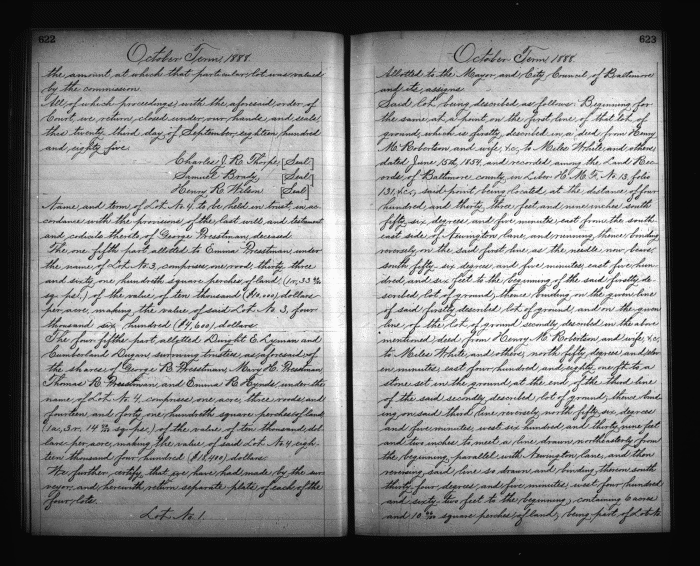 622
October Term, 1888.
the amount at which that particular lot was valued
by the commission.
All of which proceedings with the aforesaid order of
Court, we return, closed under our hands and seals
this twenty third day of September, eighteen hundred
and eighty five.
Charles J. R. Thorpe [Seal]
Samuel Brady [Seal]
Henry R. Wilson [Seal]
Name, and term of Lot No. 4, to be held in trust, in ac-
cordance with the provisions of the last will, and testament
and codicils thereto of George Presstman, deceased.
The one fifth part allotted to Emma Presstman, under
the name of Lot No. 3, comprises one rood, thirty three
and sixty one hundredth square perches of land (1 r., 33
sq. ps.), of the value of ten thousand ($10,000) dollars
per acre, making the value of said Lot No. 3, four
thousand six hundred ($4,600) dollars.
The four fifths part allotted Dwight E. Lyman and
Cumberland Dugan, surviving trustees, as aforesaid of
the shares of George B. Presstman, Mary H. Presstman
Thomas R. Presstman, and Emma B. Hynds, under the
name of Lot No. 4, comprises one acre, three roods, and
fourteen and forty one hundredth square perches of land
(1 a., 3 r., 14 sq. ps.) of the value of ten thousand dol-
lars per acre, making the value of said Lot No. 4, eigh-
teen thousand four hundred ($18,400) dollars.
We further certify that we have had made by the sur-
veyor, and herewith return separate plats of each of the
four lots.
Lot No. 1.
623
October Term, 1888.
Allotted to the Mayor and City Council of Baltimore
and its assigns.
Said lot being described as follows: Beginning for
the same at a point on the first line of that lot of
ground, which is firstly described in a deed from Henry
McRoberson and wife, &c., to Miles White, and others,
dated June 15th, 1854, and recorded among the Land Rec-
ords of Baltimore county, in Liber H.M.F. No. 13, folio
131, &c., said point being located at the distance of four
hundred and thirty three feet and nine inches south
fifty six degrees and five minutes east from the south
east side of Newington lane, and running thence binding
reversely on the said first line, as the needle now bears,
south fifty six degrees and five minutes, east five hun-
dred, and six feet to the beginning of the said firstly de-
scribed lot of ground; thence binding on the given line
of said firstly described lot of ground, and on the given
line of the lot of ground secondly described in the above
mentioned deed from Henry McRoberson and wife, &c.,
to Miles White and others, north fifty degrees and
minutes, east four hundred and eighty one ft. to a
stone set in the ground at the end of the third line
of the said secondly described lot of ground; thence bind-
ing on said third line reversely north fifty six degrees
and five minutes, west six hundred and thirty nine feet
and two inches to meet a line drawn northeasterly from
the beginning, parallel with Newington lane, and then
reversing said line so drawn and binding thereon south
thirty four degrees and five minutes, west four hundred
and sixty two feet to the beginning, containing 6 acres
and 10 square perches of land; being part of Lot No.